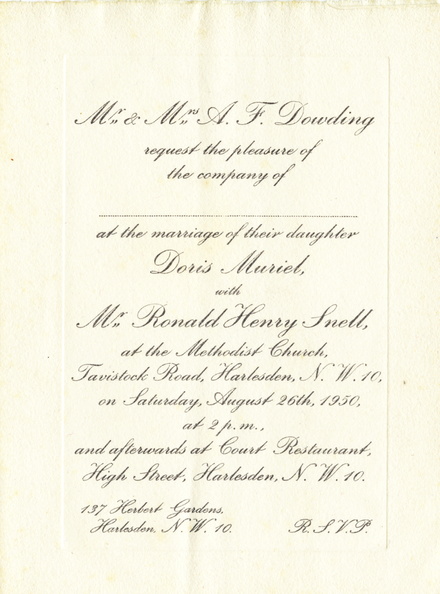 Mr. & Mrs. A. F. Dowding
request the pleasure of
the company of
at the marriage of their daughter
Doris Muriel,
with
Mr. Ronald Henry Snell,
at the Methodist Church,
Tavistock Road, Harlesden, N. W. 10,
on Saturday, August 26th, 1950,
at 2 p.m.,
and afterwards at Court Restaurant,
High Street, Harlesden, N. W. 10.
137 Herbert Gardens,
Harlesden, N. W. 10.
R. S. V. P.